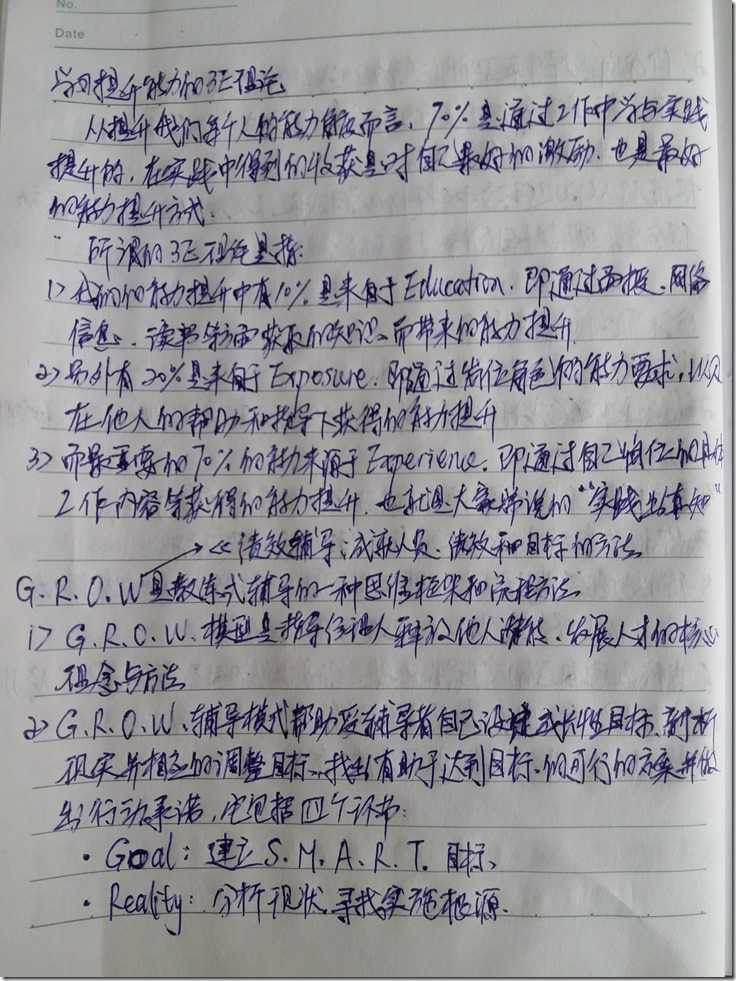 No.
Date
学习提升能力的3E理论
从提升我们每个人的能力角度而言，70%是通过工作中学与实践
提升的，在实践中得到的收获是对自己最好的激励，也是最好
的能力提升方式．
所谓的3E理论是指：
1) 我们的能力提升中有10%是来自于Education．即通过面授、网络
信息、读书等方面获取的知识、而带来的能力提升
2) 另外有20%是来自于Exposure．即通过岗位角色的能力要求，以及
在他人的帮助和指导下获得的能力提升
3) 而最重要的70%的能力来源于Experience．即通过自己岗位的具体
工作内容等获得的能力提升．也就是大家常说的"实践出真知"
《绩效辅导：成就人员、绩效和目标的方法
G.R.O.W是教练式辅导的一种思维框架和流程方法
1) G.R.O.W.模型是指导经理人释放他人潜能、发展人才的核心
理念与方法
2) G.R.O.W.辅导模式帮助受辅导者自己设建成长性目标、剖析
现实并相应的调整目标、找出有助于达到目标的可行的方案并做
出行动承诺，它包括四个环节：
• Goal：建立S.M.A.R.T.目标、
• Reality：分析现状，寻找实施根源．